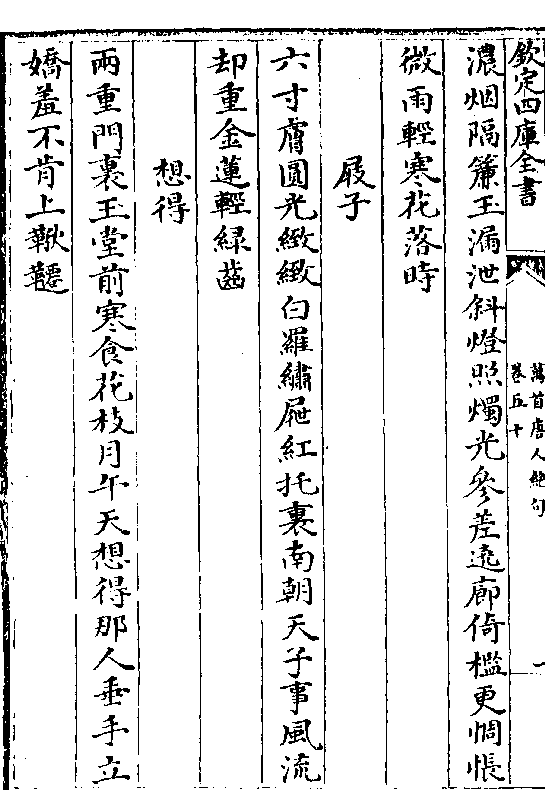 欽定四庫全書
萬首唐人絶句
卷五十
一
濃烟隔簾玉漏泄斜燈照燭光參差遶廊倚檻更惆悵
微雨輕寒花落時
屐子
六寸膚圓光緻緻白羅繡屧紅托裏南朝天子事風流
却重金蓮輕緑齒
想得
兩重門裏玉堂前寒食花枝月午天想得那人垂手立
嬌羞不肯上鞦韆